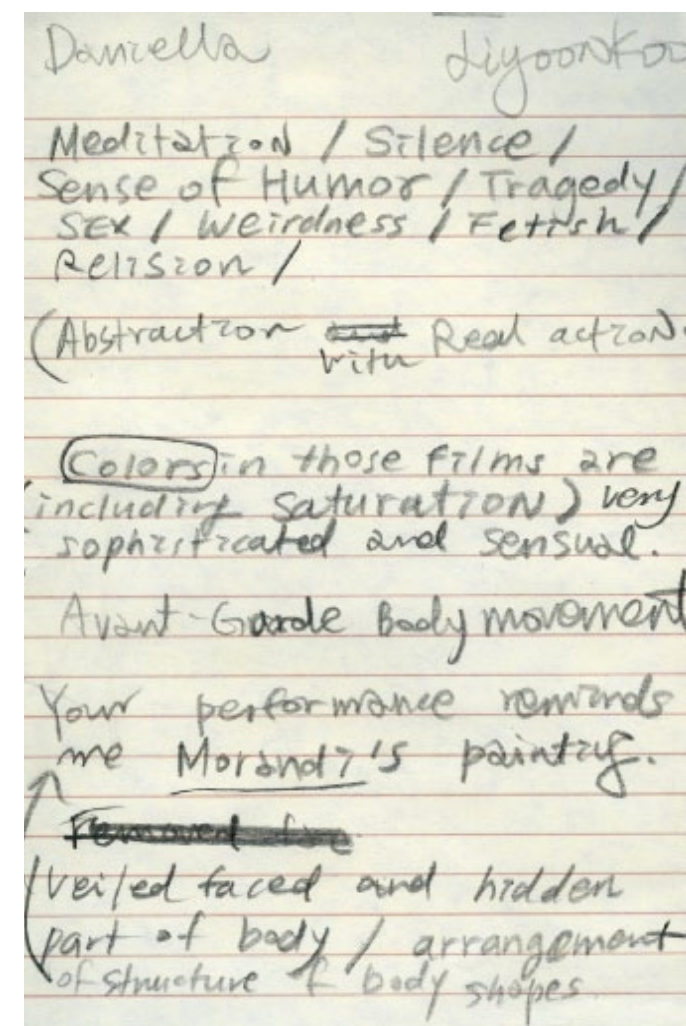 Daniella JiyoonKoo
Meditation / Silence /
Sense of Humor / Tragedy /
SEX / Weirdness / Fetish /
Relision /
(Abstraction with Real action.
Colors in those films are
(including saturation) very
sophisticated and sensual.
Avant-Garde Body movement
Your performance reminds
me Morandi's painting.
veiled faced and hidden
part of body / arrangement
of structure of body shapes